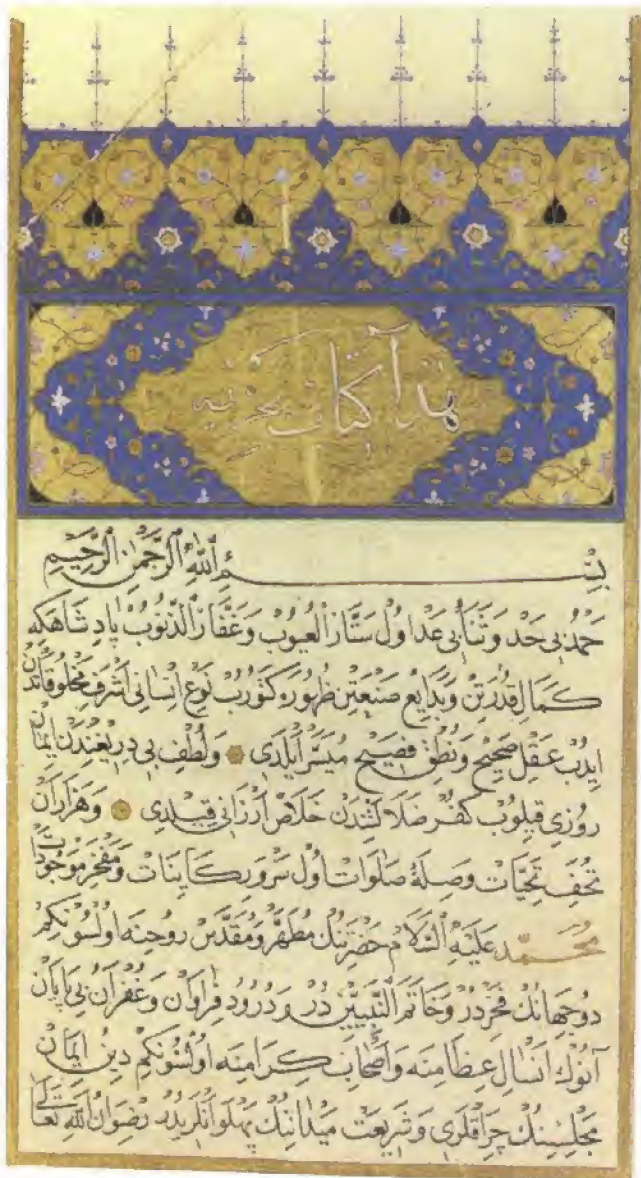 هذا كتاب بحريه
بسم الله الرحمن الرحيم
حمد بى حد وثناء بى عد اول ستار العيوب وغفار الذنوب پادشاهكه
كمال قدرتن وبدايع صنعتن ظهوره كتورب نوع انسانى اشرف مخلوقاتدن
ايدب عقل صحيح ونطق فصيح ميسر ايلدى ولطف بى دريغندن ايمان
روزى قيلوب كفر ضلالتدن خلاص ارزانى قيلدى وهزاران
تحف تحيات وصلة صلوات اول سرور كاينات ومفخر موجودات
محمد عليه السلام حضرتنك مطهر ومقدس روحنه اولسونكم
دو جهانك فخردر وخاتم النبيين در ودرود فراوان وغفران بى پايان
آنوك انسال عظامنه واصحاب كرامنه اولسونكم دين ايمان
مجلسنك چراقلرى وشريعت ميداننك پهلوانلريدر رضوان الله تعالى